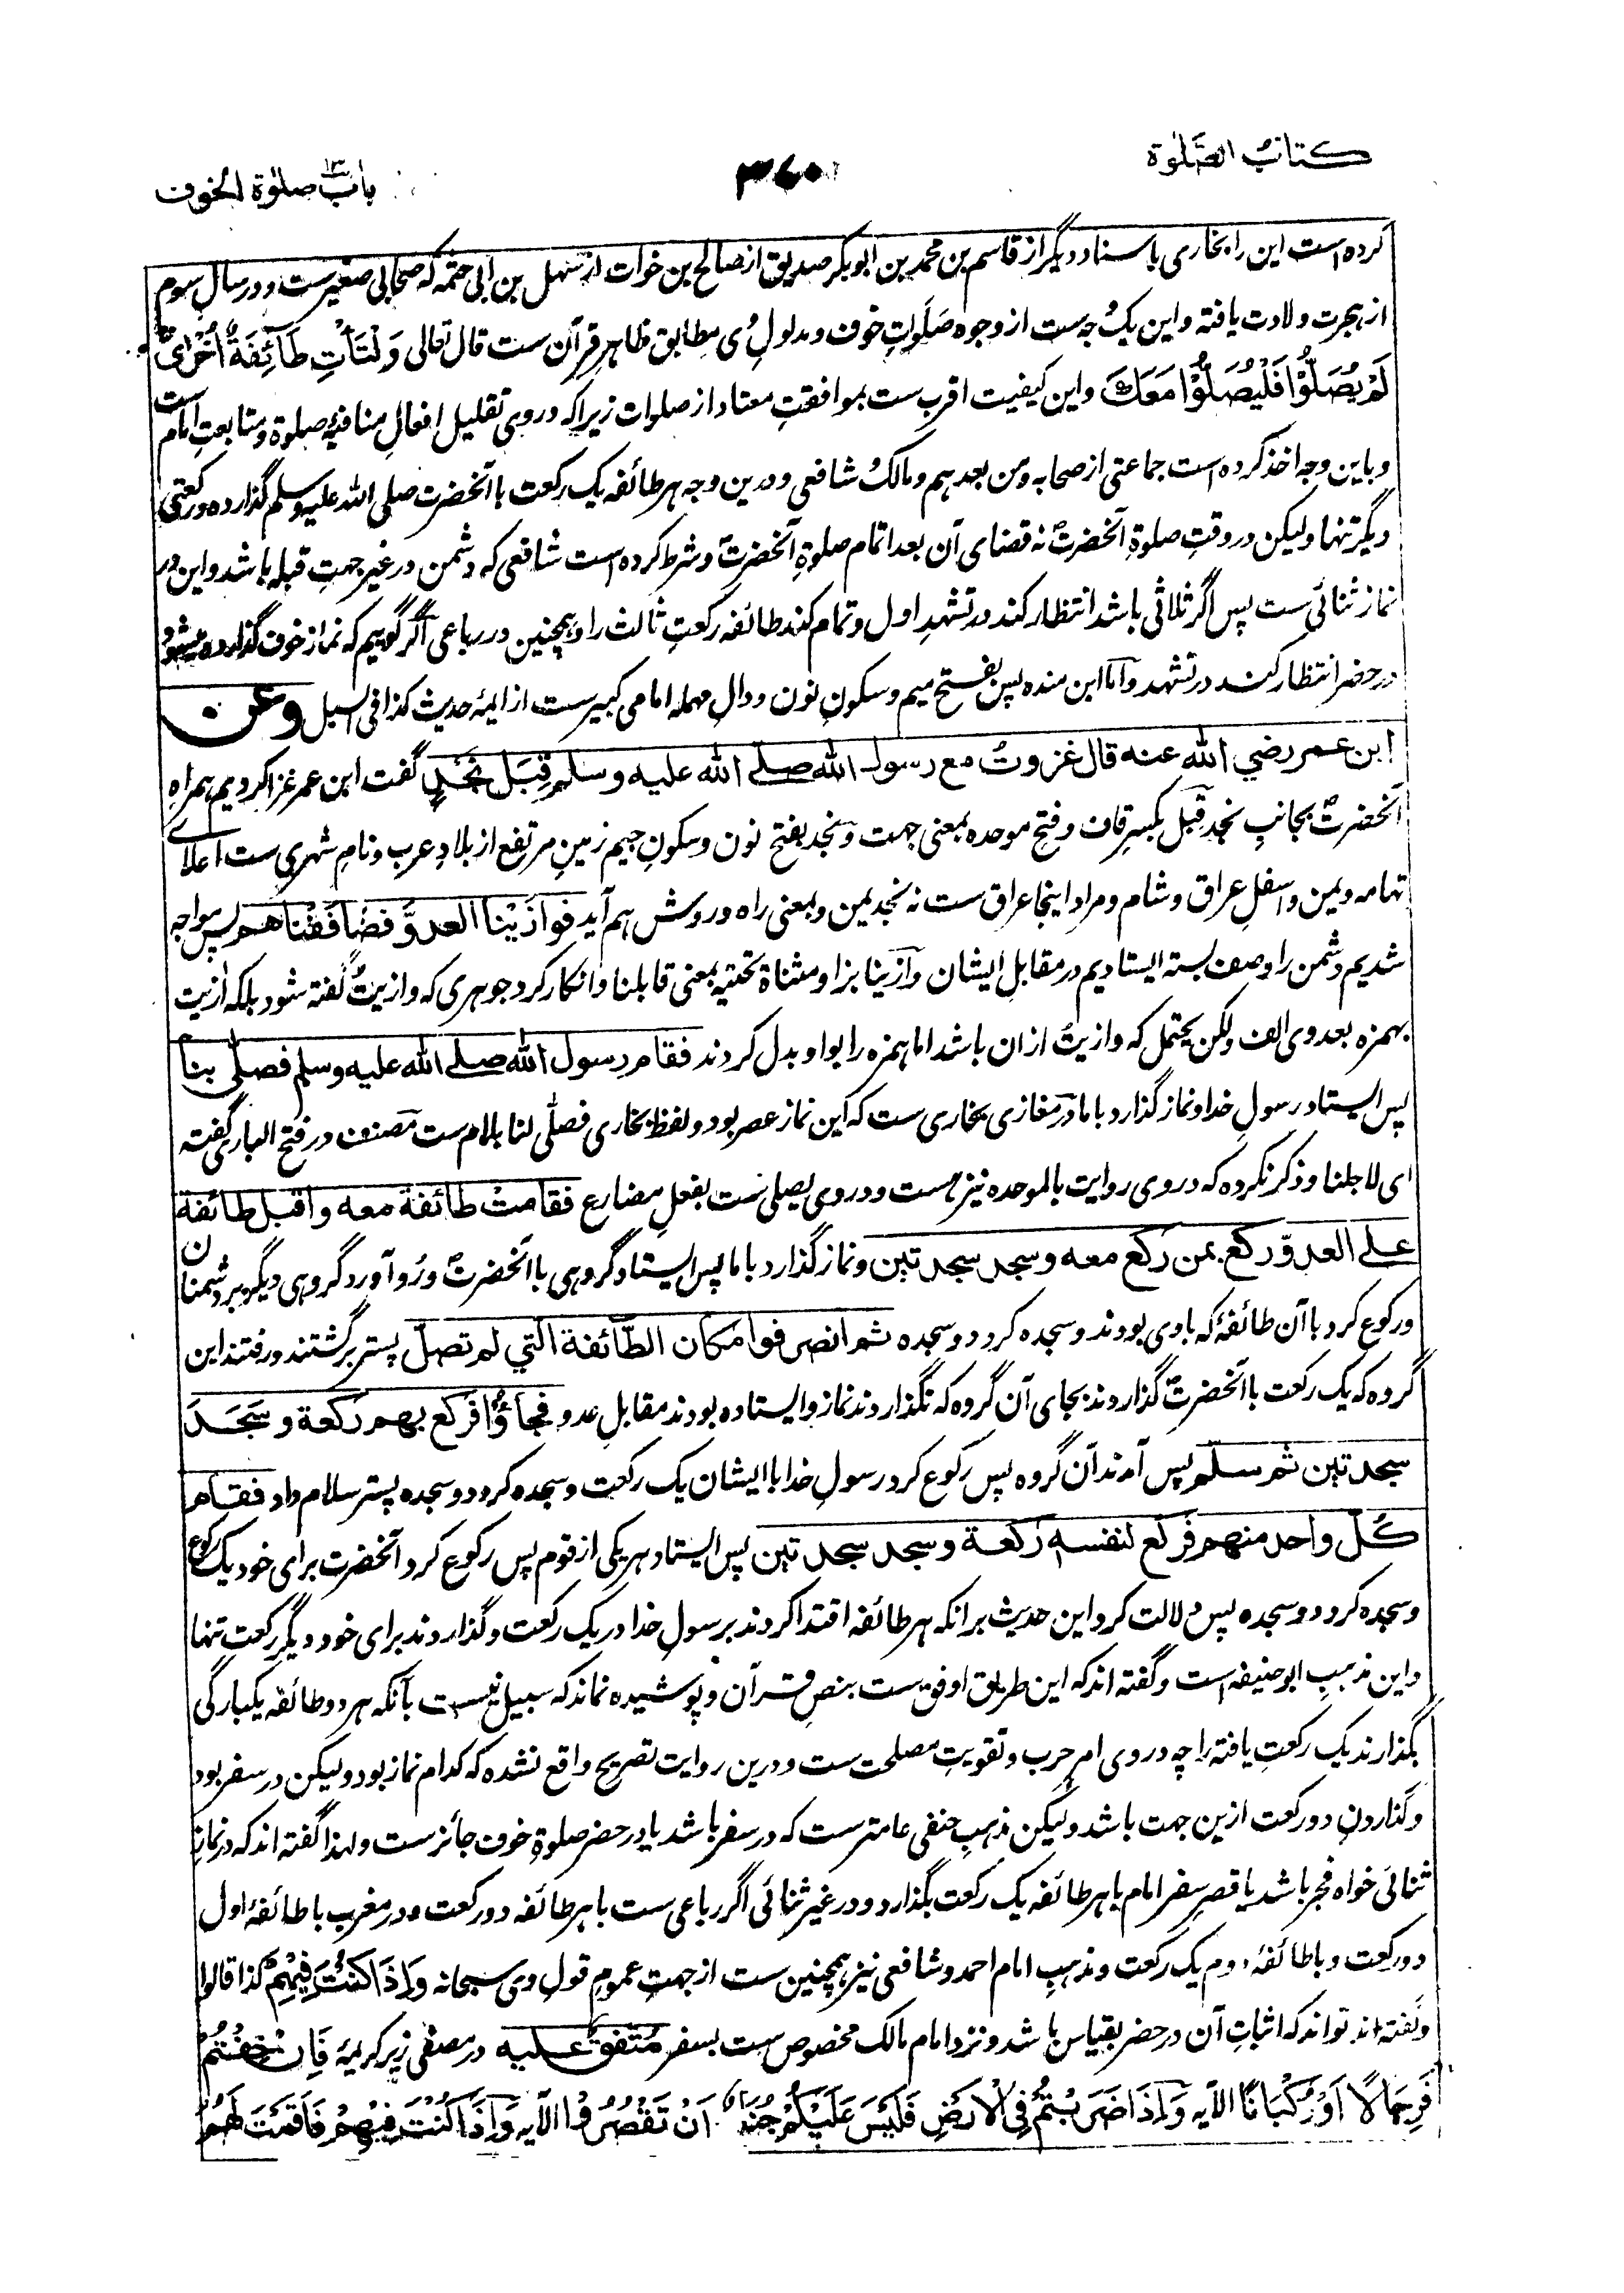 کتاب الصَّلوٰة
۳۷۰
باب صلوٰة الخوف
۱۳
کرده است این را بخاری باسناد دیگر از قاسم بن محمد بن ابوبکر صدیق از صالح بن خوات از سهل بن ابی حثمه که صحابی صغیرست و در سال سوم
از هجرت ولادت یافته و این یک وجه ست از وجوه صَلَواتِ خوف و مدلولِ وی مطابق ظاهرِ قرآن ست قال تعالی وَلْتَأْتِ طَآئِفَةٌ اُخْرٰی
لَمْ یُصَلُّوْا فَلْیُصَلُّوْا مَعَكَ و این کیفیت اقرب ست بموافقتِ معتاد از صلوات زیراکه در وی تقلیل افعالِ منافیهٔ صلوة و متابعتِ امام ست
و باین وجه اخذ کرده است جماعتی از صحابه و من بعدهم و مالکؒ شافعی و درین وجه هر طائفه یک رکعت با آنحضرت صلی الله علیه وسلم گذارده و رکعتی
دیگر تنها ولیکن در وقتِ صلوةِ آنحضرتؐ نه قضای آن بعد اتمام صلوةِ آنحضرتؐ و شرط کرده است شافعی که دشمن در غیر جهتِ قبله باشد و این در
نماز ثنائی ست پس اگر ثلاثی باشد انتظار کند در تشهدِ اول و تمام کند طائفه رکعتِ ثالث را و همچنین در رباعی اگر گوییم که نماز خوف گذارده میشود
در حضر انتظار کند در تشهد و اما ابن منده پس بفتح میم و سکونِ نون و دالِ مهمله امامی کبیر ست از ایمهٔ حدیث کذا فی السبل وعن
ابن عمر رضي الله عنه قال غزوتُ مع رسول الله صلے الله علیه وسلم قِبَل نجدٍ گفت ابن عمر غزا کردیم همراهِ
آنحضرتؐ بجانبِ نجد قِبَل بکسرِ قاف و فتحِ موحده بمعنی جهت و نجد بفتح نون و سکونِ جیم زمینِ مرتفع از بلادِ عرب و نامِ شهری ست اعلای
تهامه و یمن و اسفلِ عراق و شام و مراد اینجا عراق ست نه نجدِ یمن و بمعنی راه و روش هم آید فوازَیْنا العدوَّ فصافَفْناهم پس مواجه
شدیم دشمن را و صف بسته ایستادیم در مقابلِ ایشان و آزینا بزا و مثناة تحتیه بمعنی قابلنا و انکار کرد جوهری که وازیتُ گفته شود بلکه ازیت
بهمزه بعد وی الف ولکن یحتمل که وازیتُ ازان باشد اما همزه را بواو بدل کردند فقام رسول الله صلے الله علیه وسلم فصلّٰی بنا
پس ایستاد رسولِ خدا و نماز گذارد باما در مغازی بخاری ست که این نماز عصر بود و لفظ بخاری فصلّٰی لنا بلام ست مصنف در فتح الباری گفته
ای لاجلنا و ذکر نکرده که در وی روایت بالموحده نیز هست و در وی یصلی ست بفعلِ مضارع فقامتْ طائفة معه واقبل طائفة
علے العدوّ رکع بمن رکع معه وسجد سجدتین و نماز گذارد باما پس ایستاد گروهی با آنحضرتؐ و رُو آورد گروهی دیگر بر دشمنان
و رکوع کرد با آن طائفهٔ که با وی بودند و سجده کرد دو سجده ثم انصرفوا مکان الطّائفة التي لم تصلّ پستر برگشتند و رفتند این
گروه که یک رکعت با آنحضرتؐ گذاردند بجای آن گروه که نگذاردند نماز و ایستاده بودند مقابلِ عدو فجاؤا فرکع بهم رکعة و سَجَدَ
سجدتین ثم سلّم پس آمدند آن گروه پس رکوع کرد رسولِ خدا با ایشان یک رکعت و سجده کرد دو سجده پستر سلام داد فقام
کلّ واحد منهم فرکع لنفسه رکعة وسجد سجدتین پس ایستاد هر یکی از قوم پس رکوع کرد آنحضرت برای خود یک رکوع
و سجده کرد دو سجده پس دلالت کرد این حدیث برانکه هر طائفه اقتدا کردند برسولِ خدا در یک رکعت و گذاردند برای خود دیگر رکعتِ تنها
و این مذهبِ ابوحنیفه است و گفته اند که این طریق اوفق ست بنصِ قرآن و پوشیده نماند که سبیل نیست بآنکه هر دو طائفه یکبارگی
بگذارند یک رکعتِ یافته را چه در وی امرِ حرب و تقویتِ مصلحت ست و درین روایت تصریح واقع نشده که کدام نماز بود ولیکن در سفر بود
و گذاردنِ دو رکعت ازین جهت باشد ولیکن مذهبِ حنفی عامتر ست که در سفر باشد یا در حضر صلوةِ خوف جائز ست و لهذا گفته اند که در نماز
ثنائی خواه فجر باشد یا قصرِ سفر امام با هر طائفه یک رکعت بگذارد و در غیر ثنائی اگر رباعی ست با هر طائفه دو رکعت و در مغرب با طائفهٔ اول
دو رکعت و با طائفهٔ دوم یک رکعت و مذهبِ امام احمد و شافعی نیز همچنین ست از جهتِ عمومِ قولِ وی سبحانه وَاِذَا کُنْتَ فِیْهِمْ کذا قالوا
و گفته اند تواند که اثباتِ آن در حضر بقیاس باشد و نزد امام مالک مخصوص ست بسفر مُتفق علیه در مصفی زیر کریمهٔ فَاِنْ خِفْتُمْ
فَرِجَالًا اَوْ رُکْبَانًا الآیه وَاِذَا ضَرَبْتُمْ فِی الْاَرْضِ فَلَیْسَ عَلَیْکُمْ جُنَاحٌ اَنْ تَقْصُرُوْا الآیه وَاِذَا کُنْتَ فِیْهِمْ فَاَقَمْتَ لَهُمُ